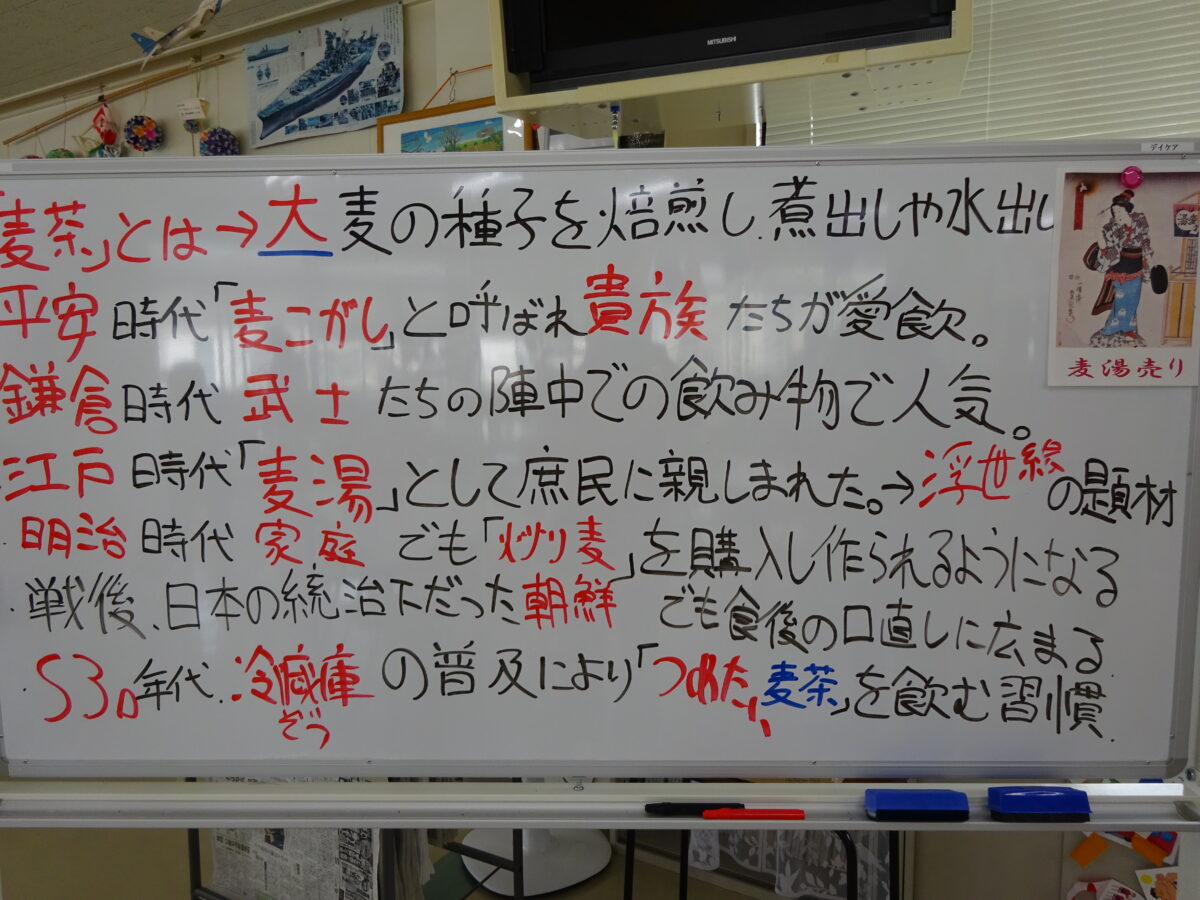 MITSUBISHI
デイケア
「麦茶」とは→大麦の種子を焙煎し、煮出しや水出し
平安時代「麦こがし」と呼ばれ貴族たちが愛飲。
鎌倉時代武士たちの陣中での飲み物で人気。
江戸時代「麦湯」として庶民に親しまれた。→浮世絵の題材
明治時代家庭でも「炒り麦」を購入し作られるようになる
戦後、日本の統治下だった朝鮮でも食後の口直しに広まる
S30年代、冷蔵庫の普及により「つめたーい麦茶」を飲む習慣
ぞう
麦湯売り